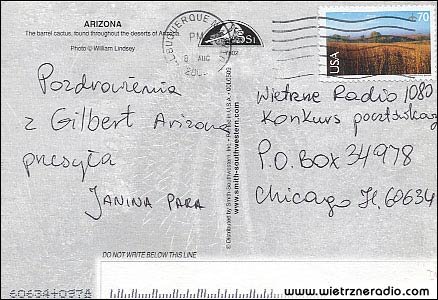 ARIZONA
The barrel cactus, found throughout the deserts of Arizona.
Photo © William Lindsey
ALBUQUERQUE
PM
8 AUG
70
USA
Pozdrowienia
z Gilbert Arizona
przesyła
JANINA PARA
Wietrzne Radio 1080
Konkurs pocztówkowy
P.O. Box 34978
Chicago Il. 60634
© Distributed by Smith-Southwestern, Inc. • Printed in U.S.A.
www.smith-southwestern.com
DO NOT WRITE BELOW THIS LINE
60634+0978
www.wietrzneradio.com